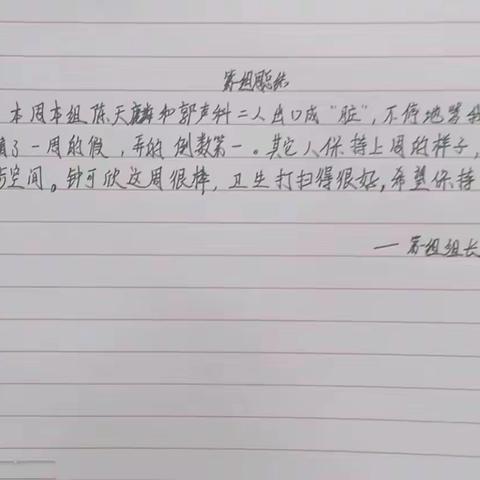 第一组总结
本周本组陈天麟和郭声科二人出口成“脏”,不停地
了一周的假,弄的倒数第一。其它人保持上周的样子,
空间。钟可欣这周很棒,卫生打扫得很好,希望保持
—第一组组长